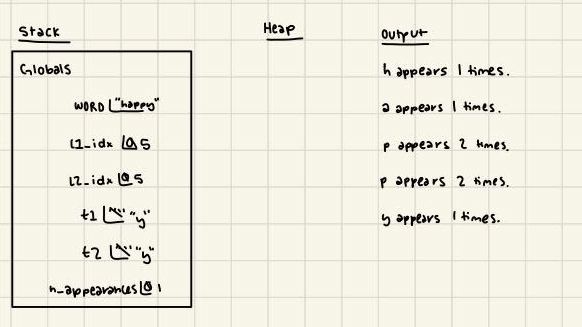 Stack
Heap
Output
Globals
WORD "happy"
l1_idx 0 5
l2_idx 0 5
t1 "y"
t2 "y"
n_appearances 0 1
h appears 1 times.
a appears 1 times.
p appears 2 times.
p appears 2 times.
y appears 1 times.